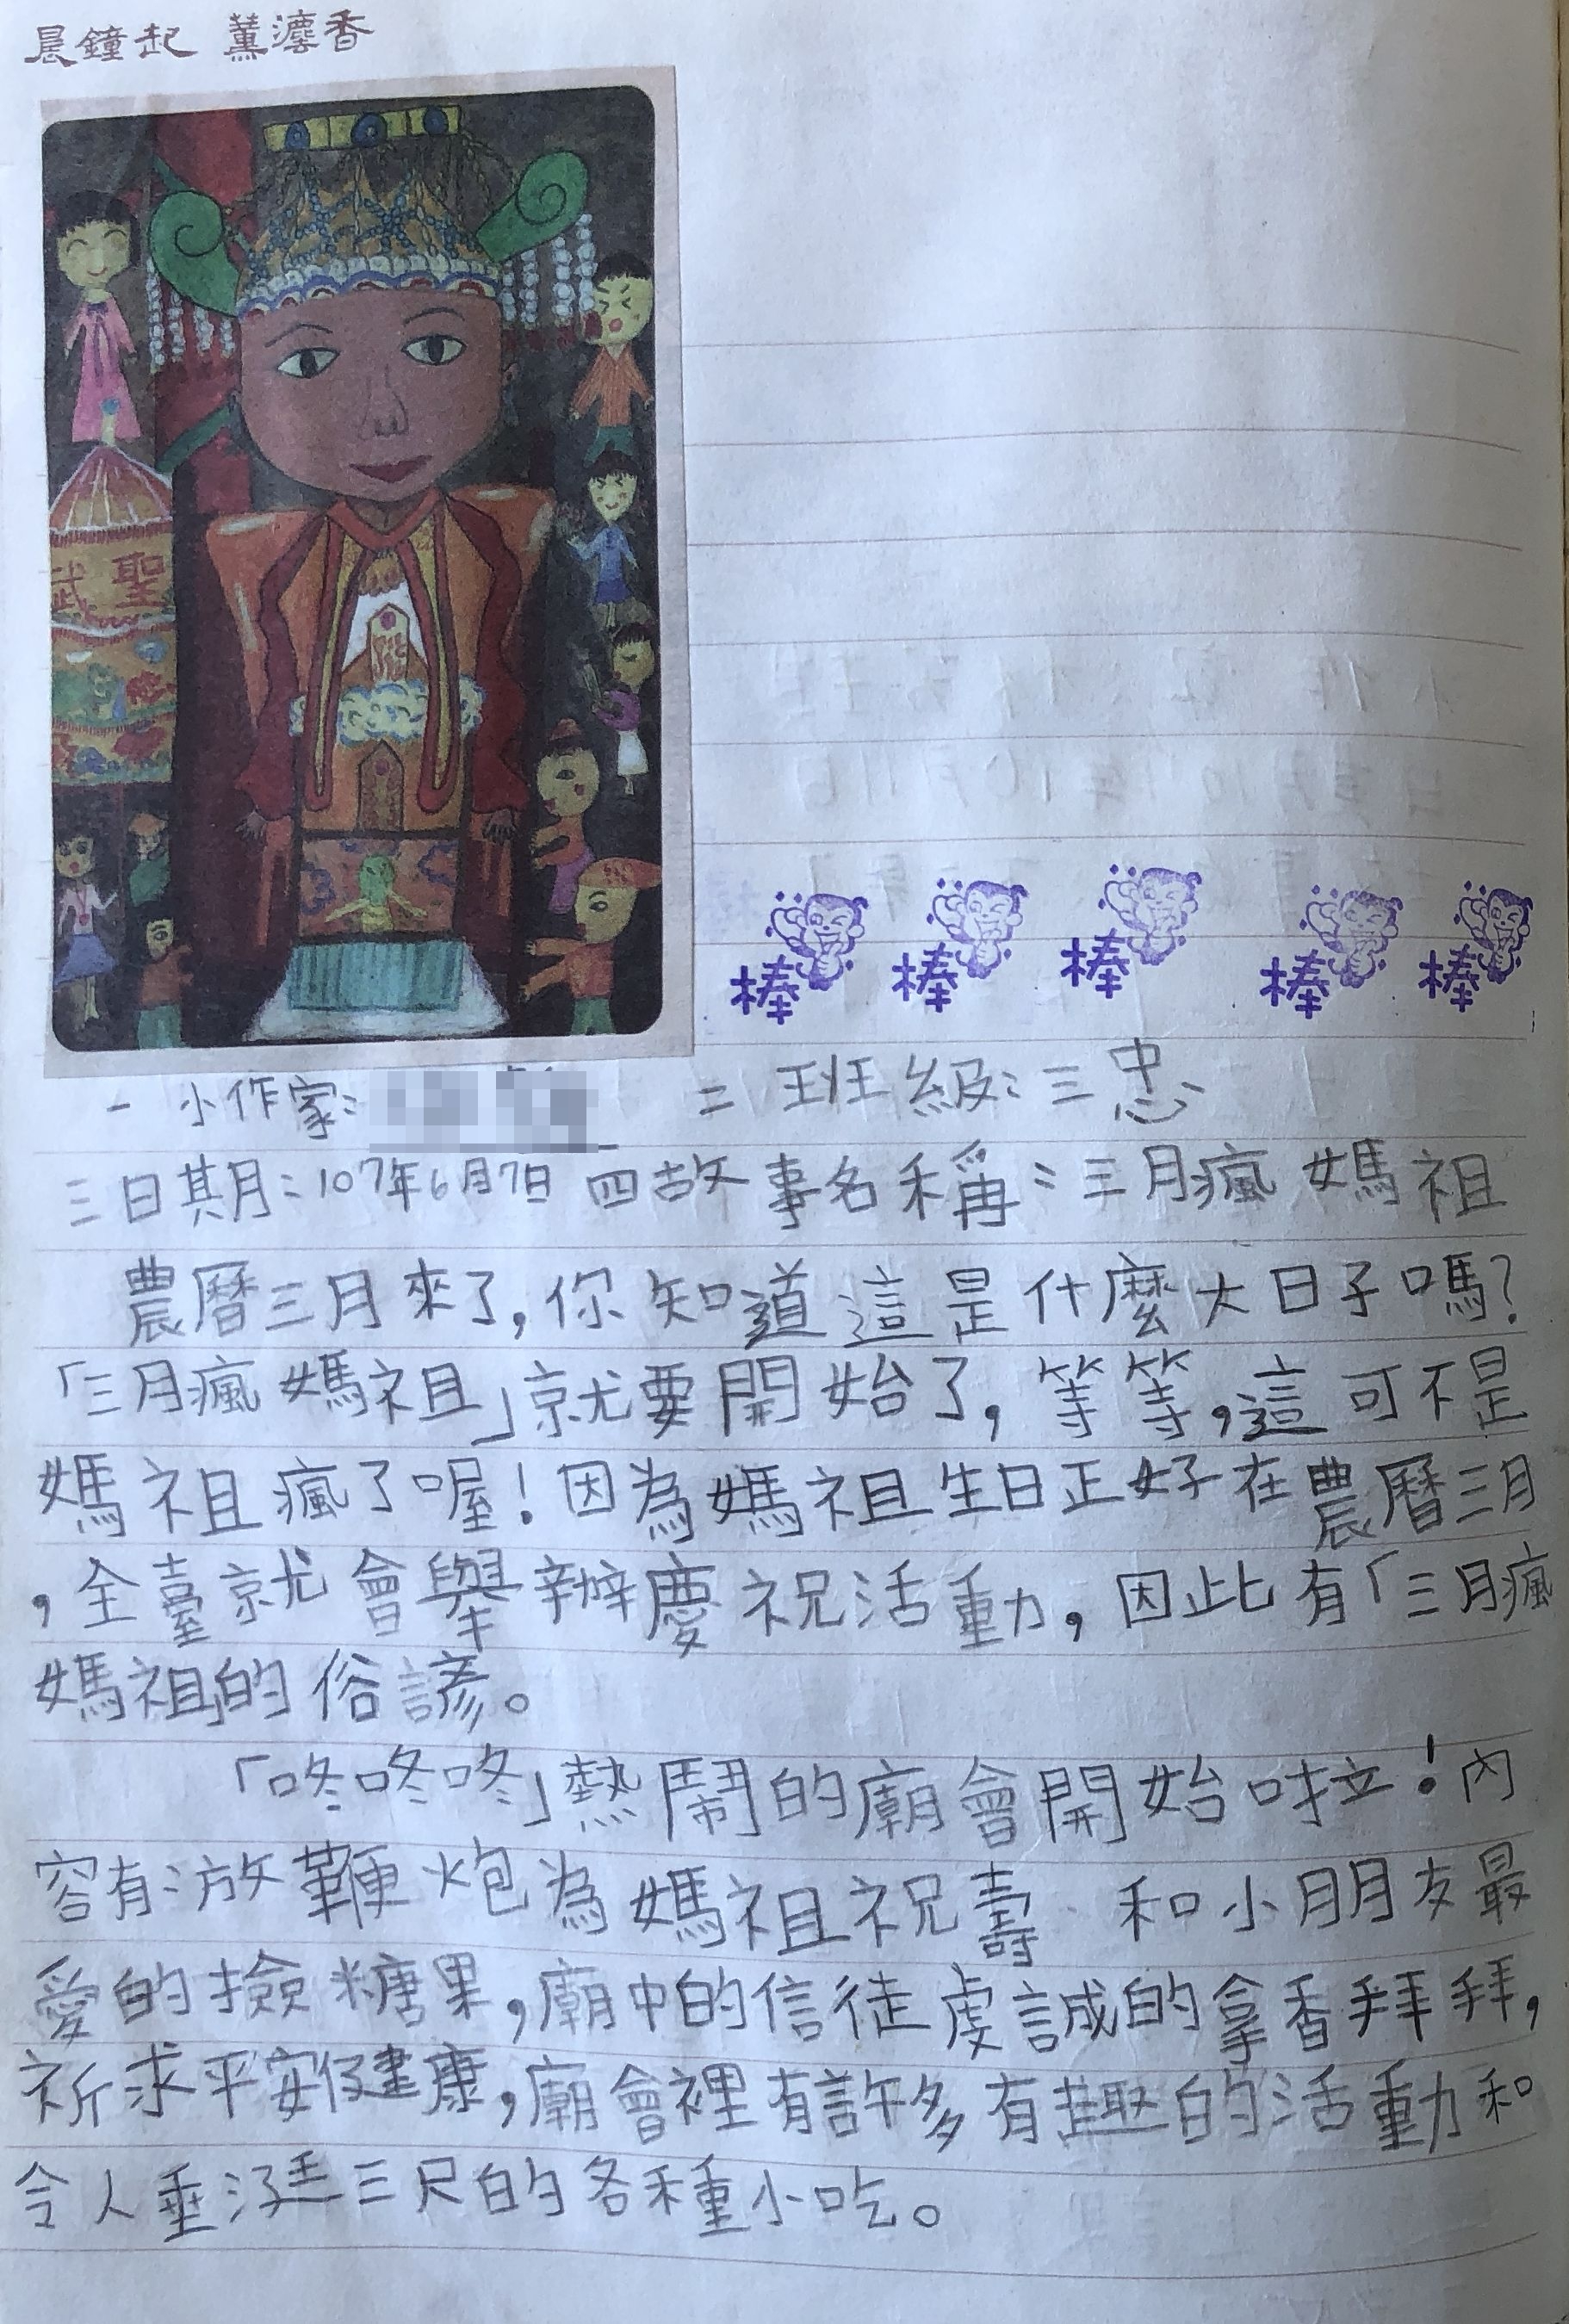 晨鐘起 薰瀍香
武聖
棒 棒 棒 棒 棒
一 小作家： 二 班級：三忠
三日期：107年6月7日 四故事名稱：三月瘋媽祖
農曆三月來了，你知道這是什麼大日子嗎？
「三月瘋媽祖」就要開始了，等等，這可不是
媽祖瘋了喔！因為媽祖生日正好在農曆三月
，全臺就會舉辦慶祝活動，因此有「三月瘋
媽祖」的俗諺。
「咚咚咚」熱鬧的廟會開始啦！內
容有：放鞭炮為媽祖祝壽、和小朋友最
愛的撿糖果，廟中的信徒虔誠的拿香拜拜，
祈求平安健康，廟會裡有許多有趣的活動和
令人垂涎三尺的各種小吃。